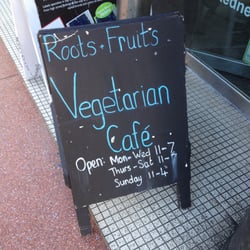 Roots + Fruits
Vegetarian
Café
Open: Mon-Wed 11-7
Thurs-Sat 11-8
Sunday 11-4